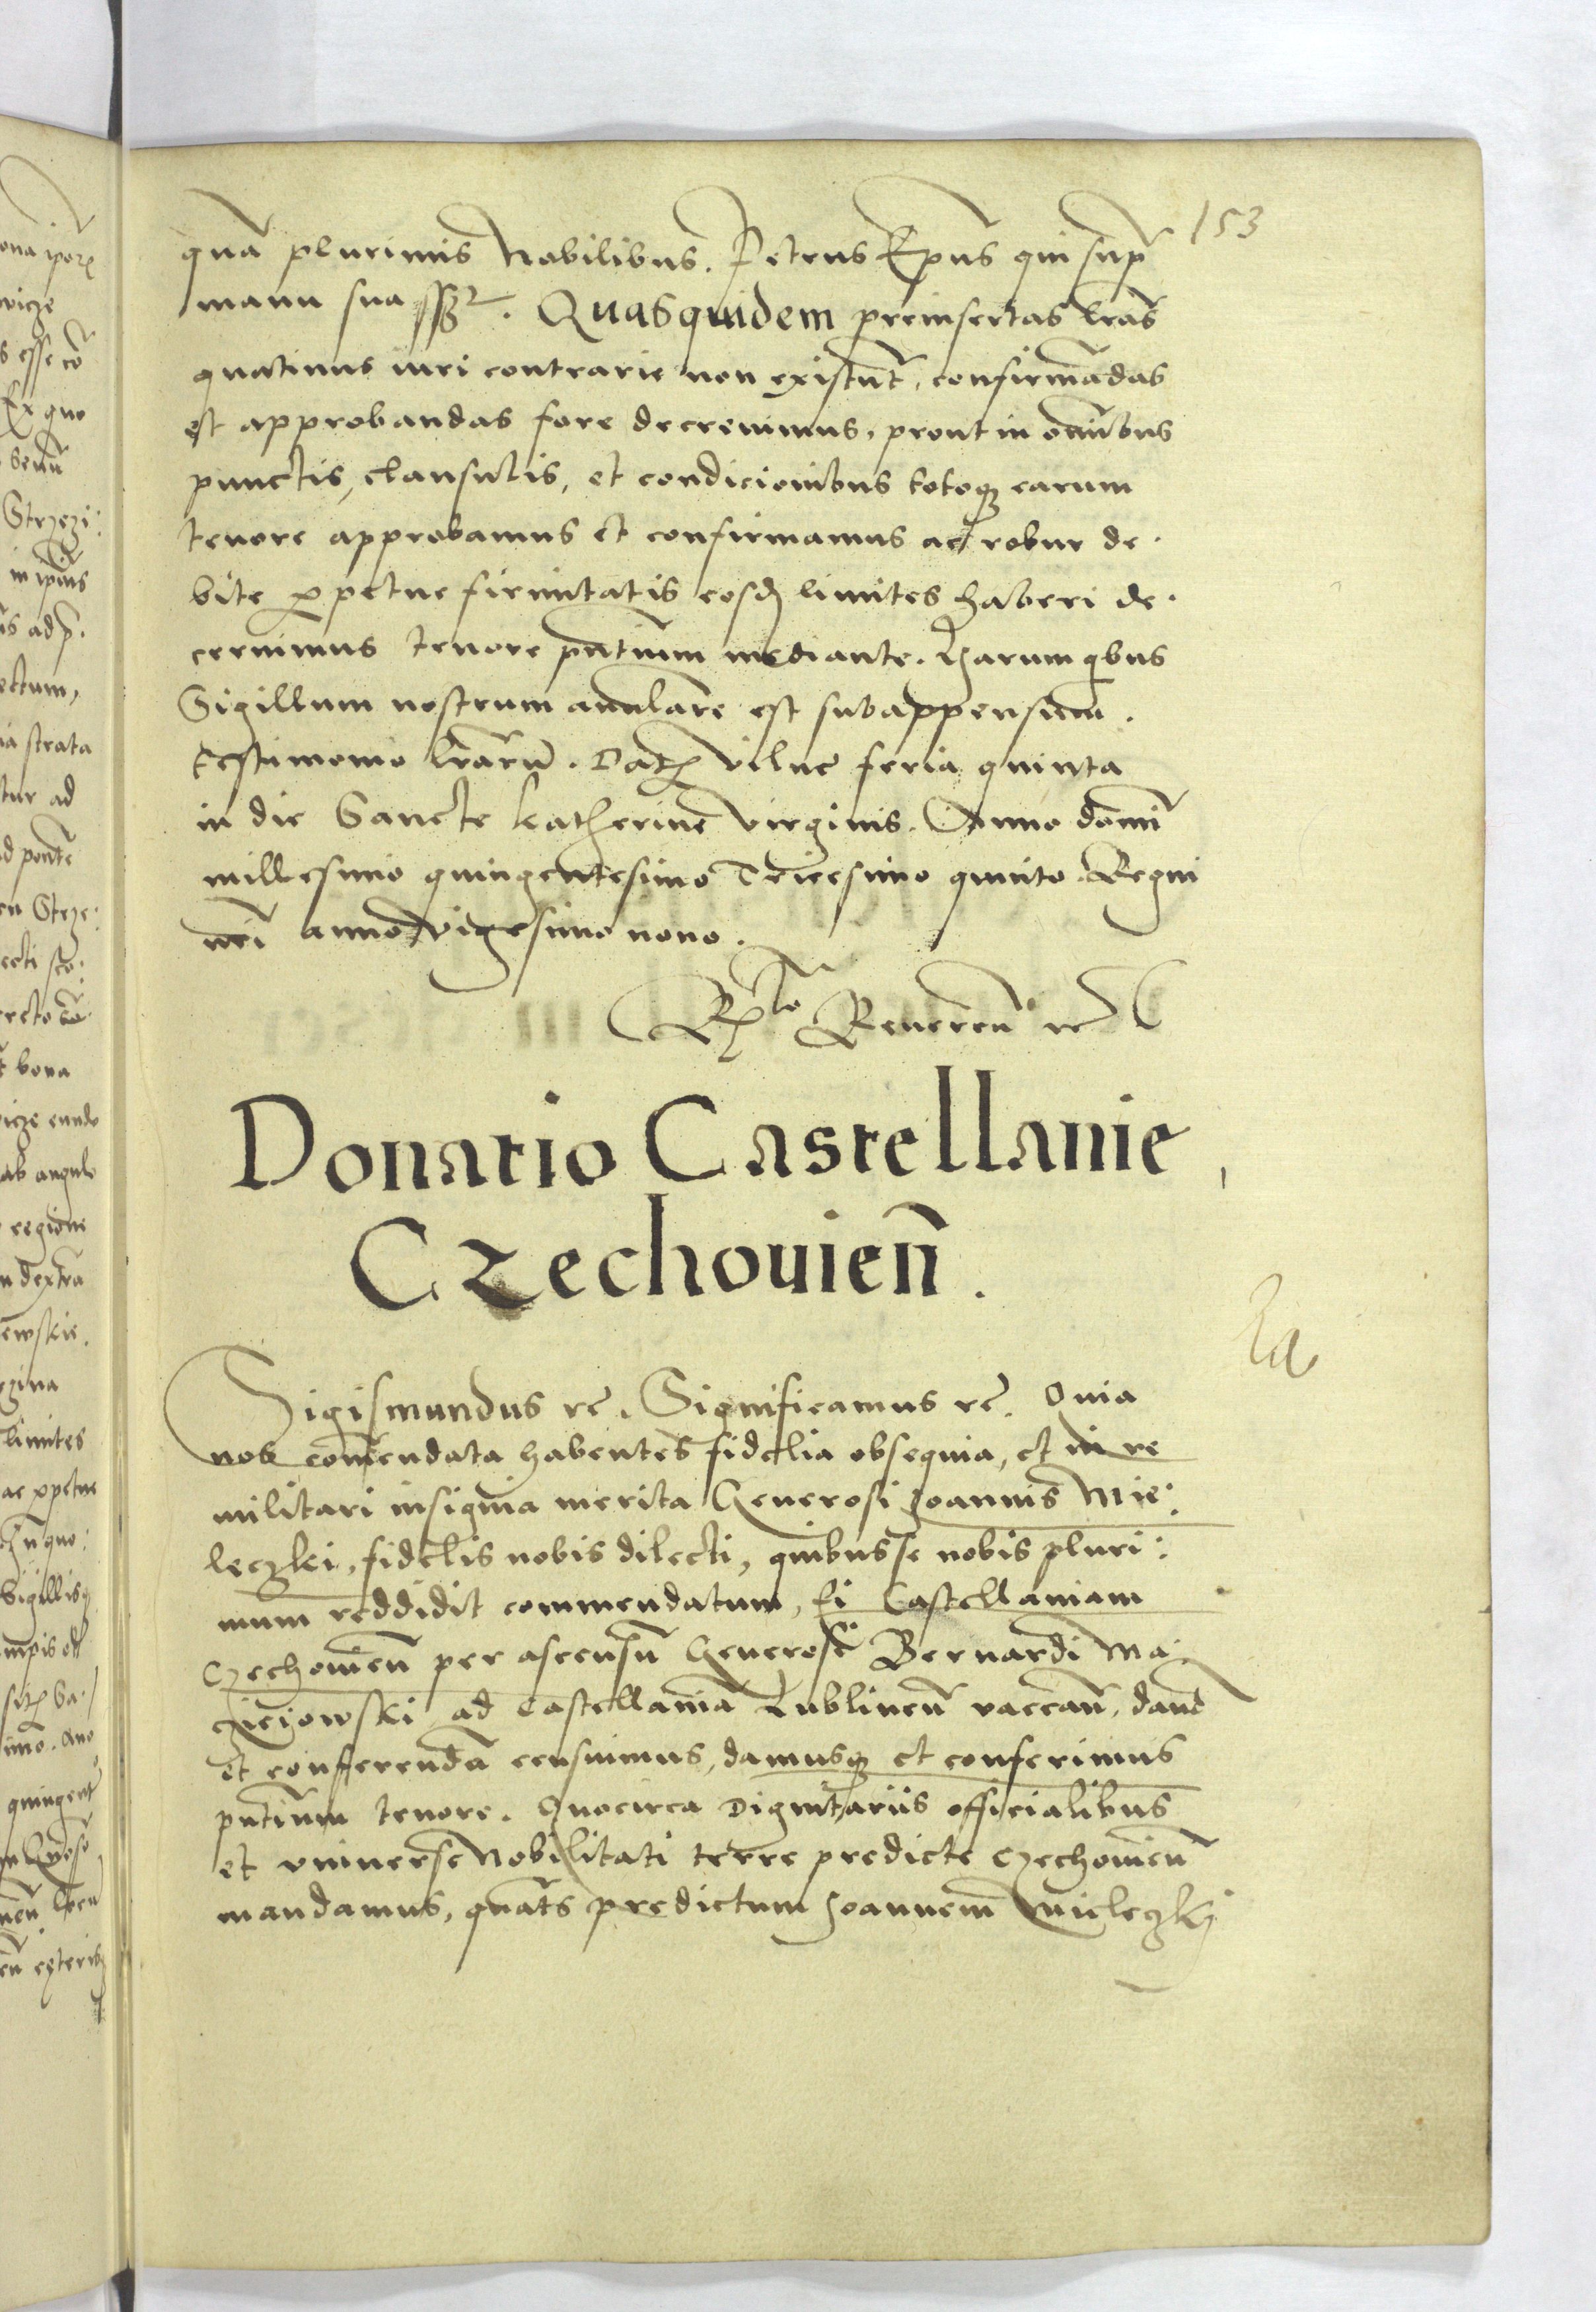 153
quã plurimis Nobilibus. Petrus Ep̃us qui sup̃
manu sua ssz. Quasquidem preinsertas lr̃as
quatinus iuri contrarie non existũt, confirmãdas
et approbandas fore decreuimus, prout in om̃ibus
punctis, clausulis, et condicionibus totoq; earum
tenore approbamus et confirmamus ac robur de-
bite perpetue firmitatis eosd limites haberi de-
cernimus tenore pñtium mediante. Harum qbus
Sigillum nostrum anulare est subappensum.
testimonio lr̃arũ. Dat Vilne feria quinta
in die Sancte Katherine Virginis. Anno domĩ
millesimo quingentesimo Tricesimo quinto. Regni
nrĩ anno vigesimo nono.
Rlo Reueren̄ rc
Donatio Castellanie,
Czechouien̄.
Sigismundus rc. Significamus rc. Quia
nob com̃endata habentes fidelia obsequia, et in re
militari insignia merita Generosi Joannis Mie:
leczki, fidelis nobis dilecti, quibus se nobis pluri:
mum reddidit commendatum, Ei Castellaniam
Czechouien̄ per ascensũ Generosi Bernardi Ma:
czieiowski ad Castellaniã Lublinen̄ vaccan̄, dand
et conferendã censuimus, damusq; et conferimus
pñtium tenore. Quocirca Dignitariis officialibus
et vniuerse Nobilitati terre predicte Czechouien̄
mandamus, quat̃s predictum Joannem Mieleczky
ona ipor
esse cõ
Ex quo
Strzezi:
in ip̃ius
ectum,
ia strata
tur ad
ad pontẽ
en Strze:
ecti
bona
icze eundo
ab angulo
regione
n dextra
ewskie.
limites
ac ppetue
Sigillisq
quingent
ceteris